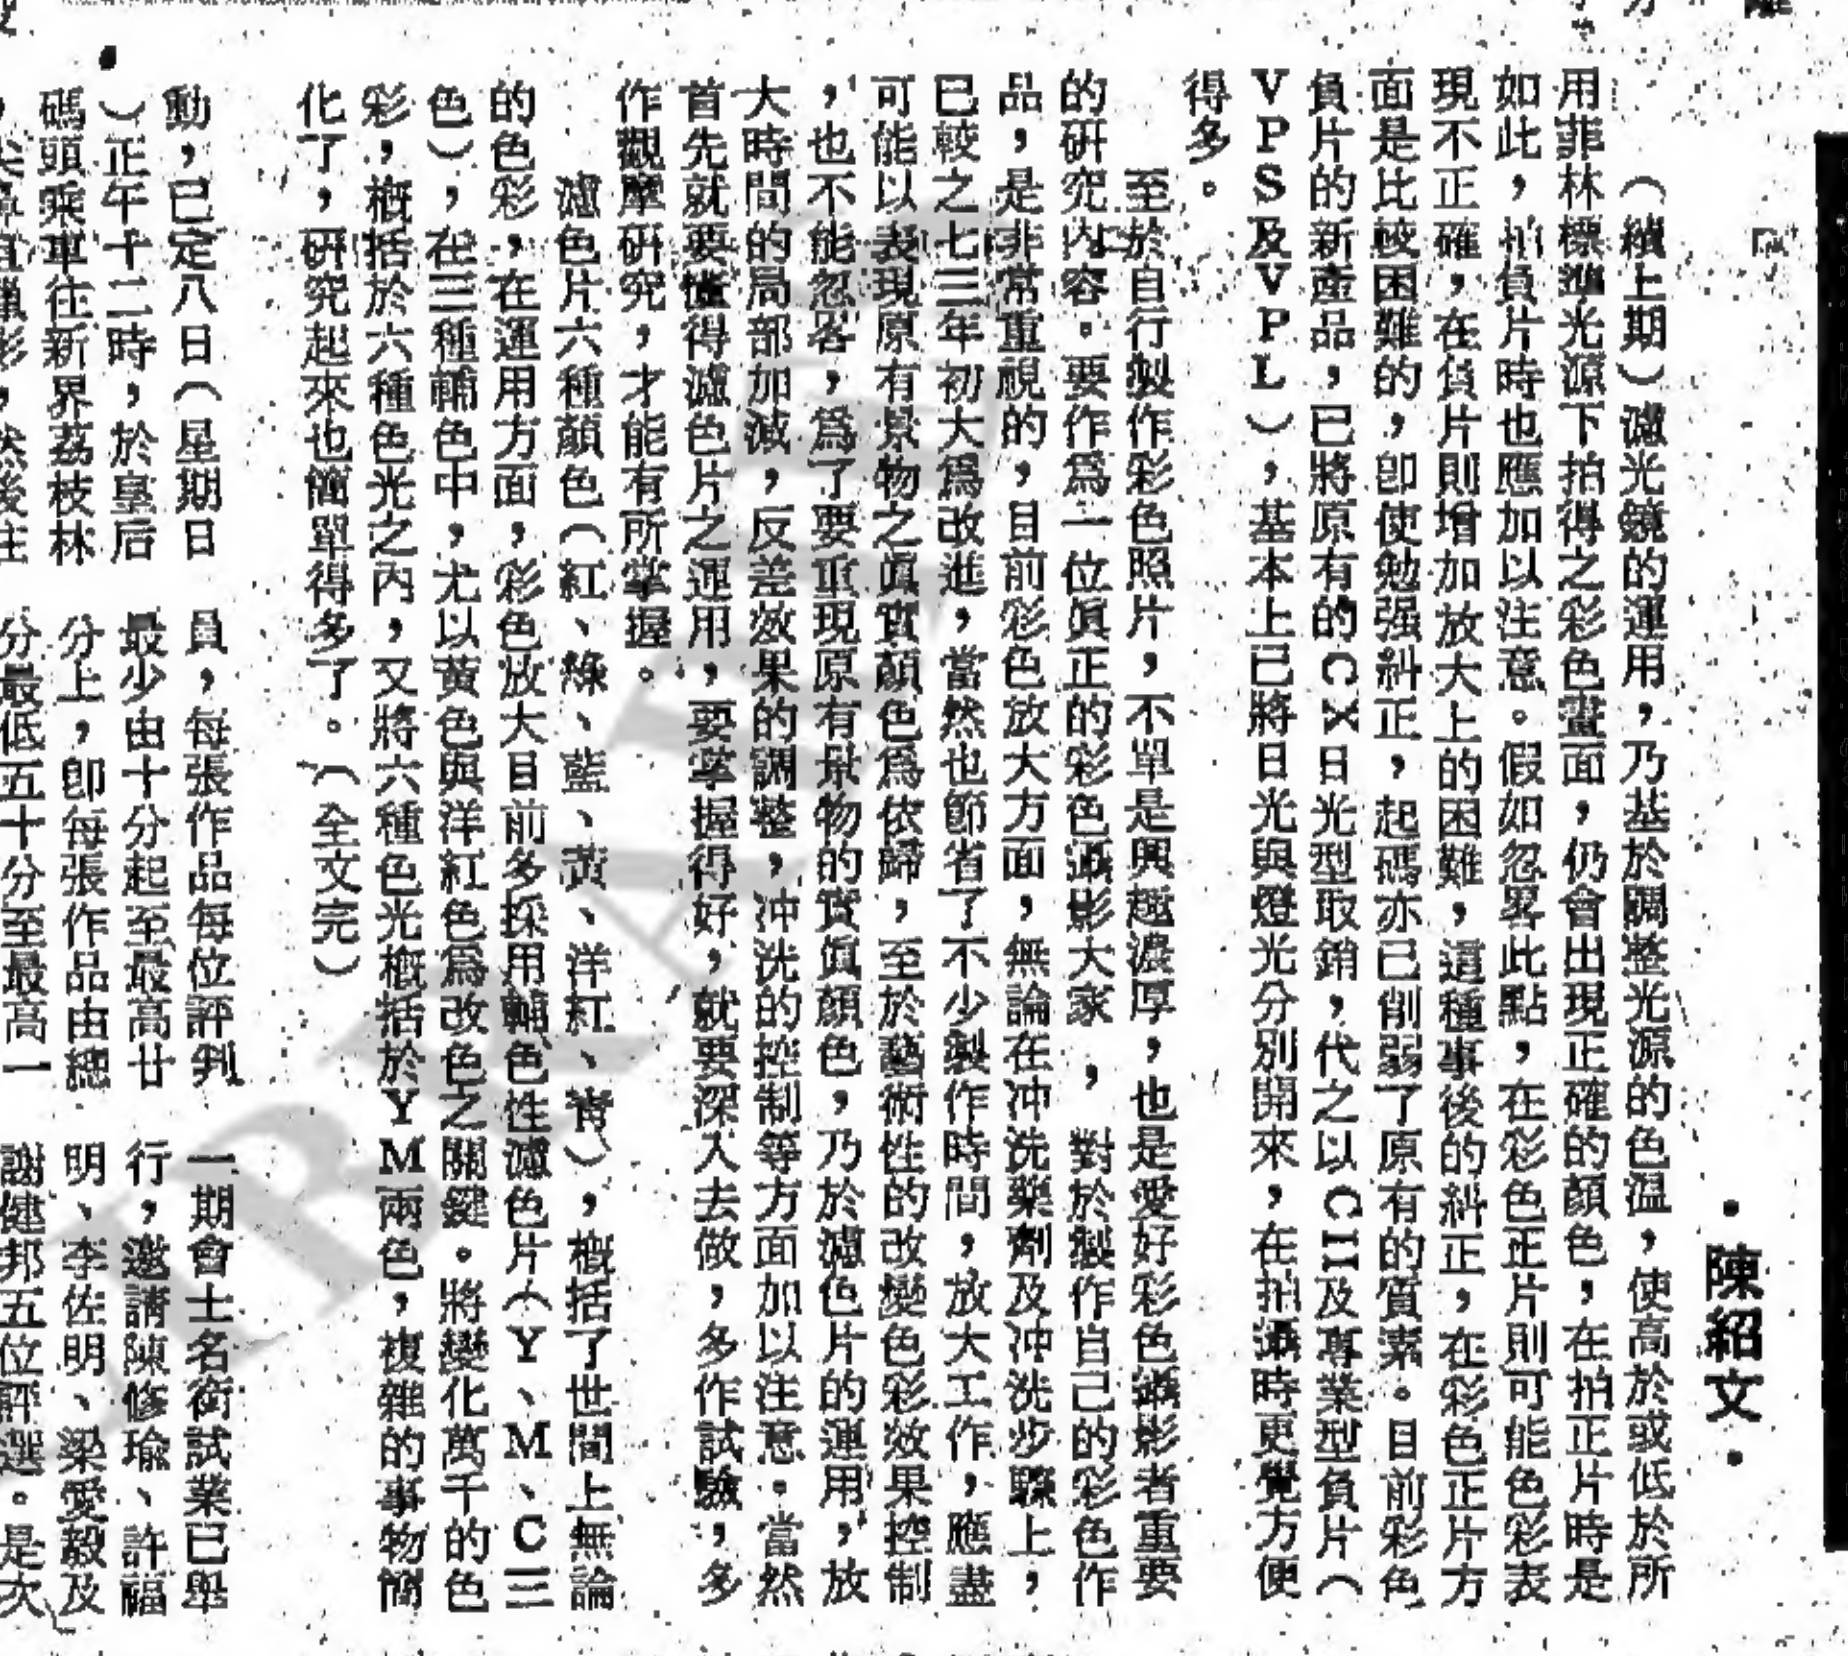 •陳紹文•
（續上期）濾光鏡的運用，乃基於調整光源的色温，使高於或低於所
用菲林標準光源下拍得之彩色畫面，仍會出現正確的顏色，在拍正片時是
如此，拍負片時也應加以注意。假如忽畧此點，在彩色正片則可能色彩表
現不正確，在負片則增加放大上的困難，這種事後的糾正，在彩色正片方
面是比較困難的，卽使勉强糾正，起碼亦已削弱了原有的質素。目前彩色
負片的新產品，已將原有的CX日光型取銷，代之以CII及專業型負片（
VPS及VPL），基本上已將日光與燈光分別開來，在拍攝時更覺方便
得多。
至於自行製作彩色照片，不單是興趣濃厚，也是愛好彩色攝影者重要
的研究內容。要作爲一位眞正的彩色攝影大家，對於製作自己的彩色作
品，是非常重視的，目前彩色放大方面，無論在冲洗藥劑及冲洗步驟上，
已較之七三年初大爲改進，當然也節省了不少製作時間，放大工作，應盡
可能以表現原有景物之眞實顏色爲依歸，至於藝術性的改變色彩效果控制
，也不能忽畧，爲了要重現原有景物的實眞顏色，乃於濾色片的運用，放
大時間的局部加減，反差效果的調整，冲洗的控制等方面加以注意。當然
首先就要懂得濾色片之運用，要掌握得好，就要深入去做，多作試驗，多
作觀摩研究，才能有所掌握。
濾色片六種顏色（紅、綠、藍、黃、洋紅、靑），概括了世間上無論
的色彩，在運用方面，彩色放大目前多採用輔色性濾色片（Y、M、C三
色），在三種輔色中，尤以黃色與洋紅色爲改色之關鍵。將變化萬千的色
彩，概括於六種色光之內，又將六種色光概括於YM兩色，複雜的事物簡
化了，研究起來也簡單得多了。（全文完）
動，已定八日（星期日
）正午十二時，於皇后
碼頭乘車往新界荔枝林
員，每張作品每位評判
最少由十分起至最高廿
分上，卽每張作品由總
分最低五十分至最高一
一期會士名銜試業已舉
行，邀請陳修瑜、許福
明、李佐明、梁愛毅及
謝健邦五位評選。是次